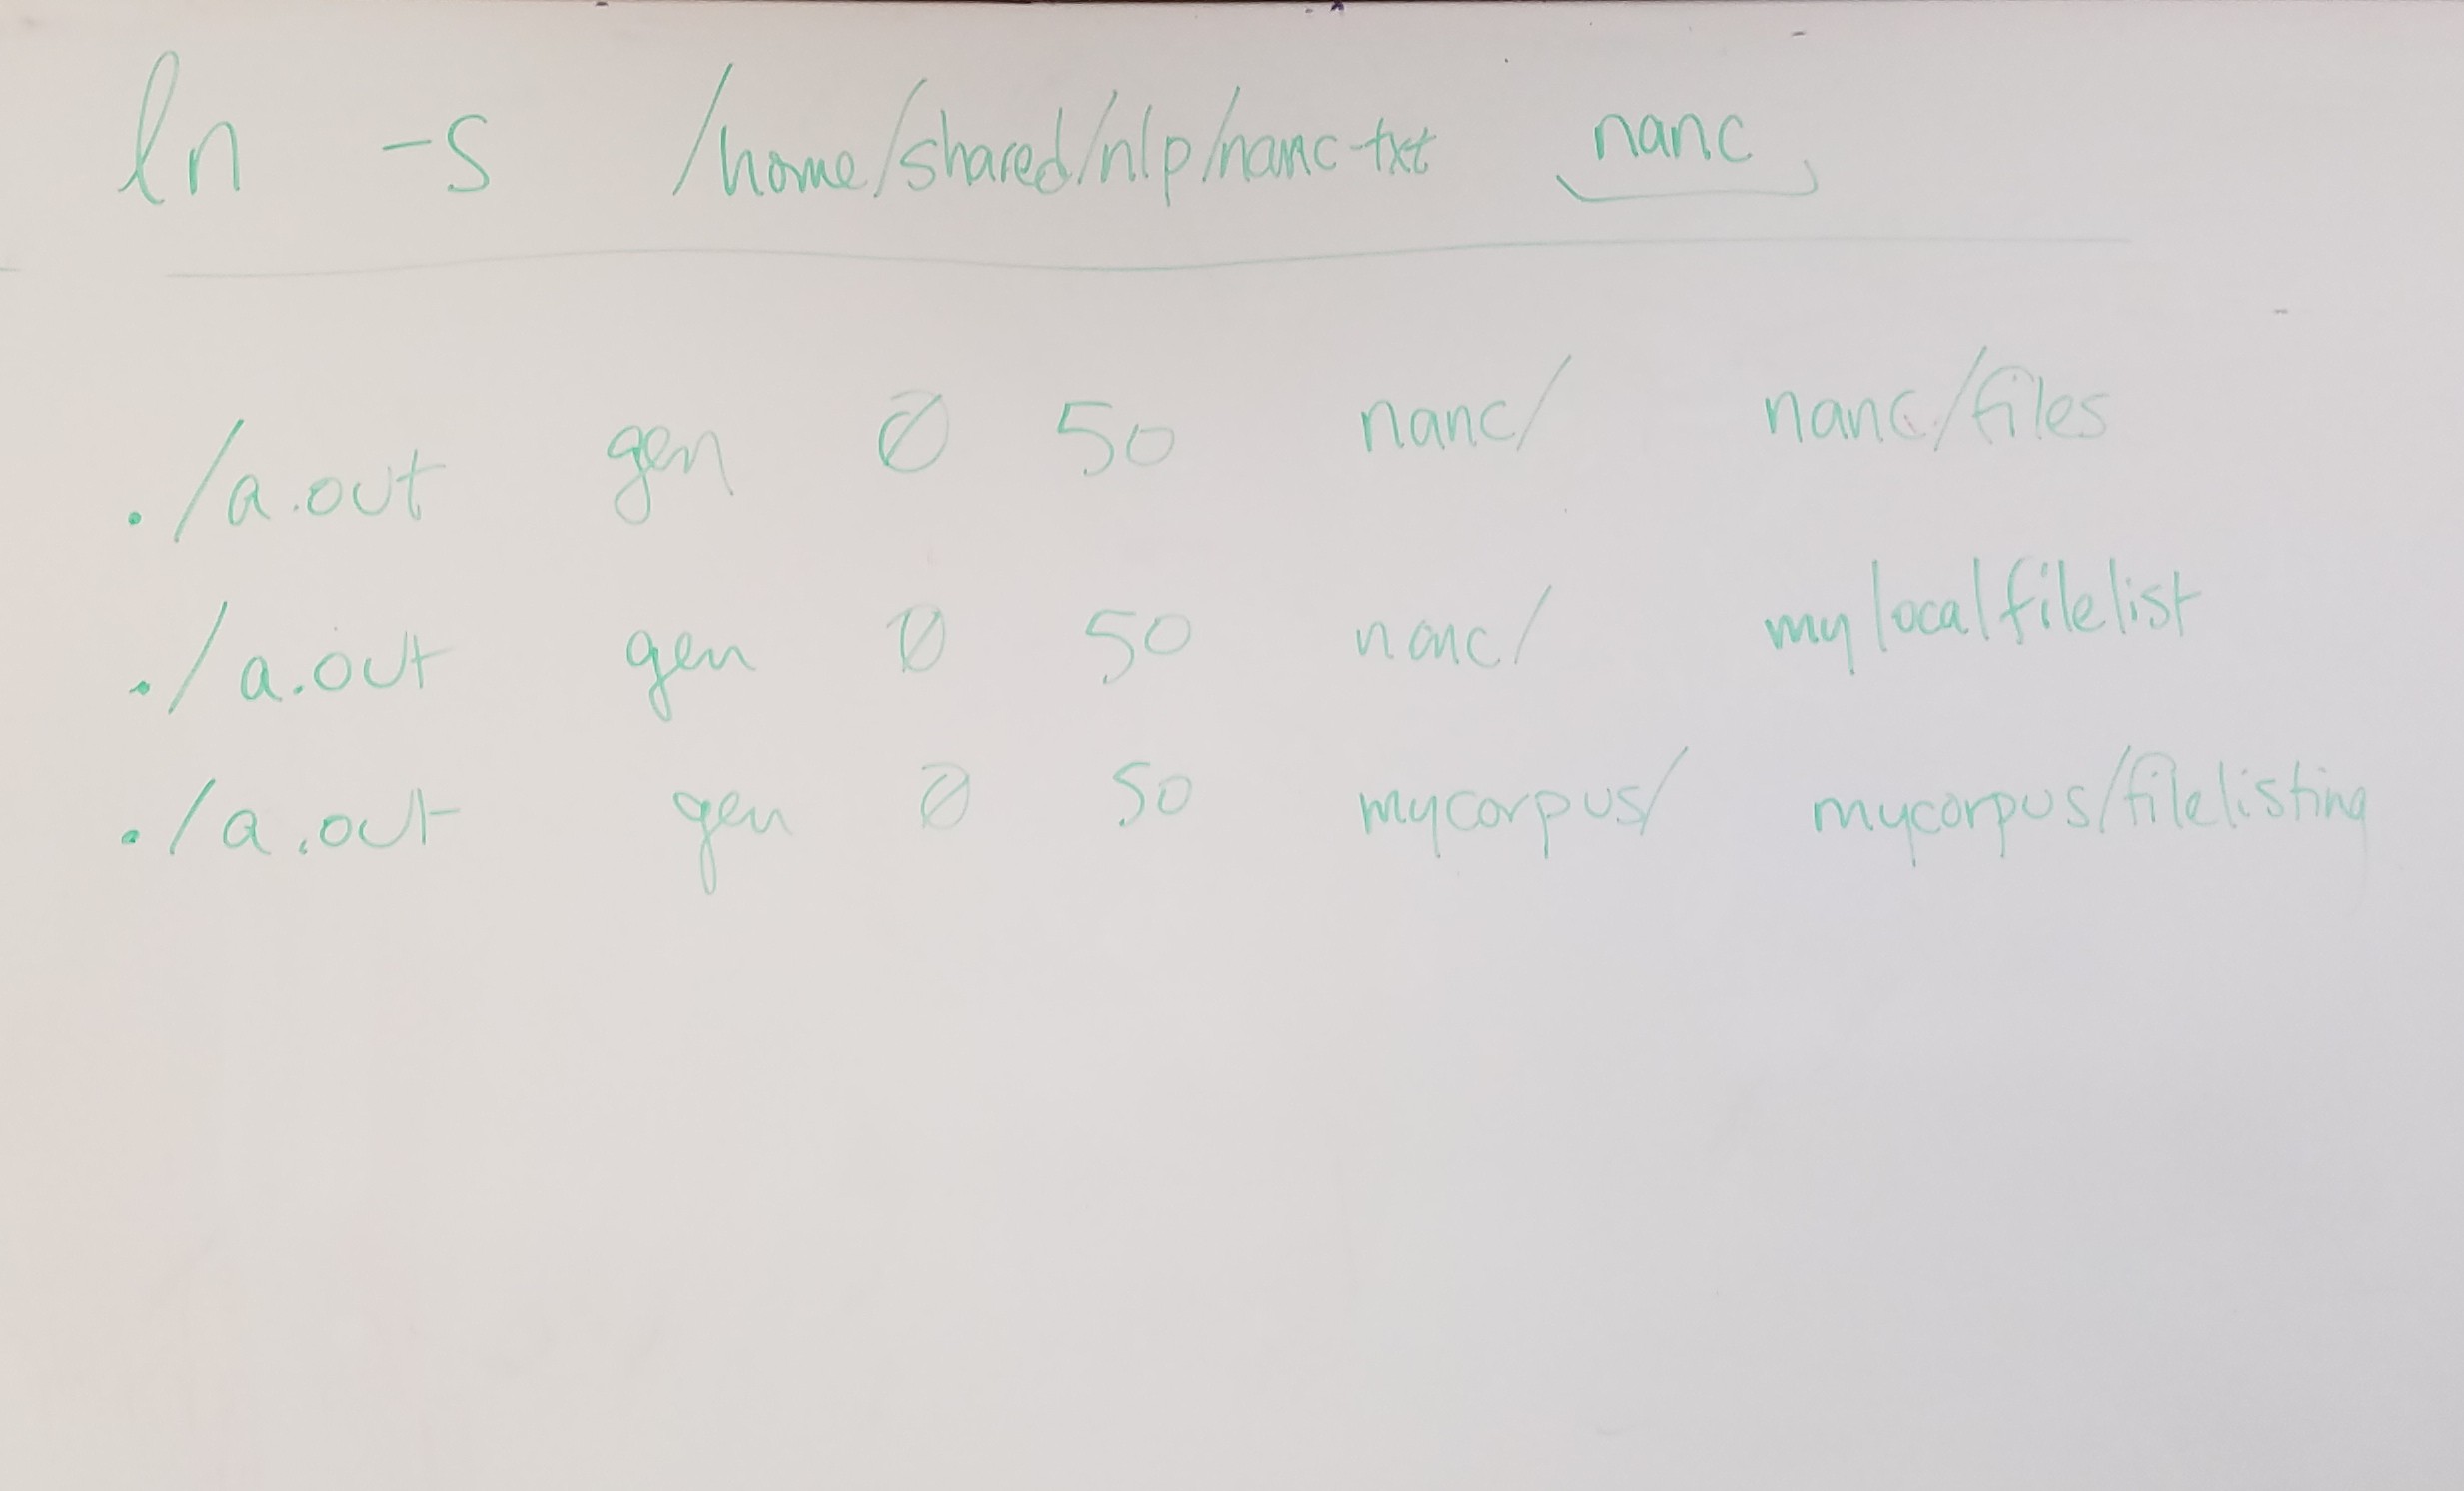 ln -s /home/shared/nlp/nanc-txt nanc
./a.out gen 0 50 nanc/ nanc/files
./a.out gen 0 50 nanc/ mylocalfilelist
./a.out gen 0 50 mycorpus/ mycorpus/filelisting